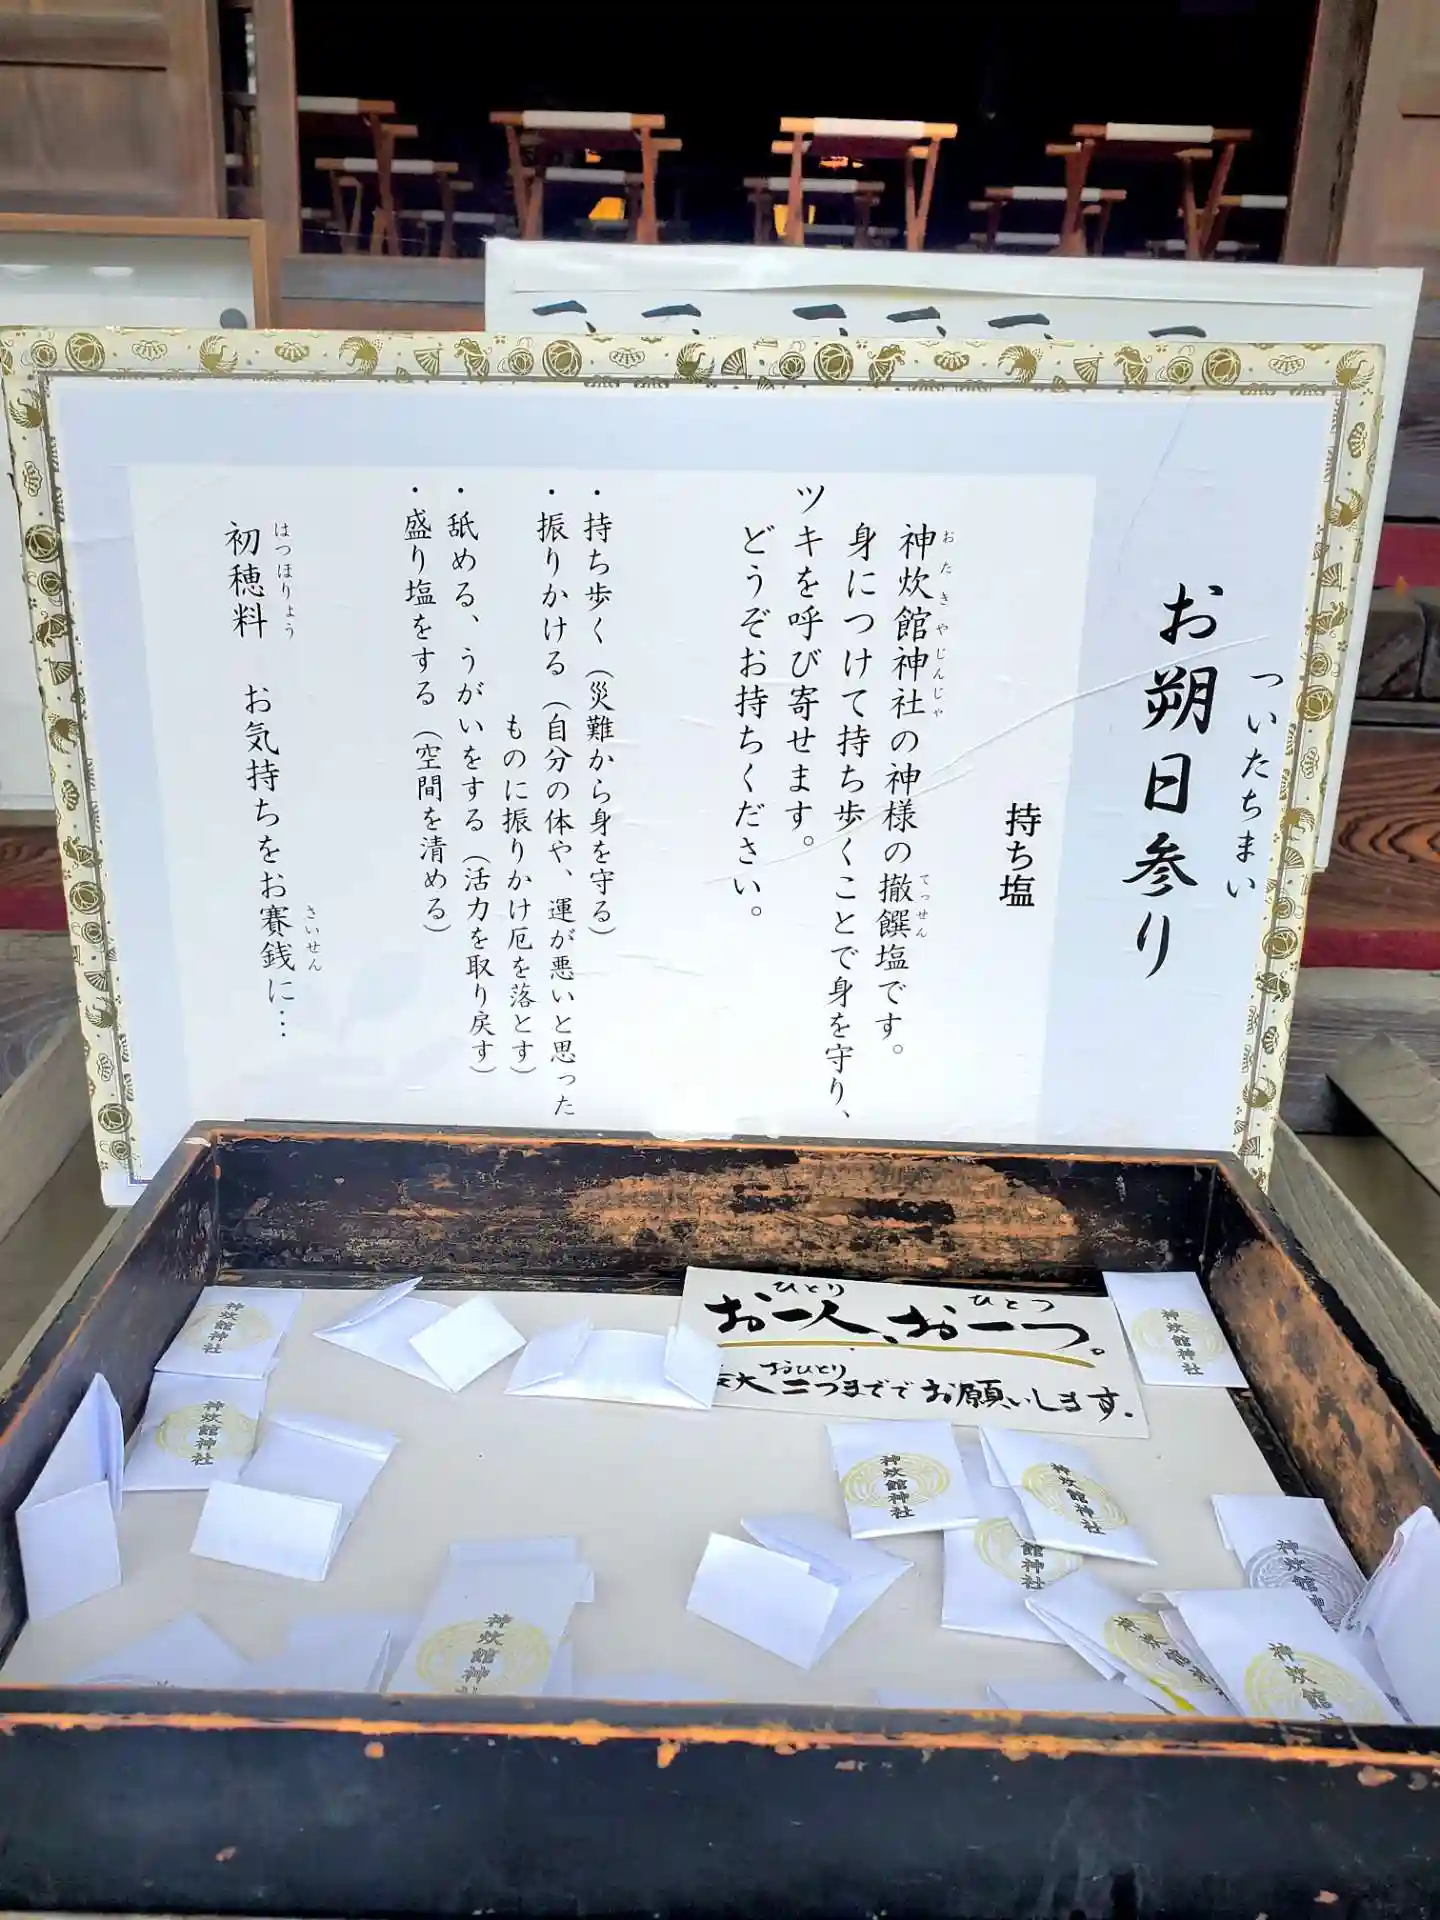 お朔日参り
ついたちまい
持ち塩
神炊館神社の神様の撤饌塩です。
おたきやじんじゃ
てっせん
身につけて持ち歩くことで身を守り、
ツキを呼び寄せます。
どうぞお持ちください。
・持ち歩く（災難から身を守る）
・振りかける（自分の体や、運が悪いと思った
ものに振りかけ厄を落とす）
・舐める、うがいをする（活力を取り戻す）
・盛り塩をする（空間を清める）
初穂料 お気持ちをお賽銭に…
はつほりょう
さいせん
ひとり ひとつ
お一人、お一つ。
おひとり
大二つまででお願いします.
神炊館神社
神炊館神社
神炊館神社
神炊館神社
神炊館神社
館神社
神炊館神
神炊館神
神炊館
神炊館